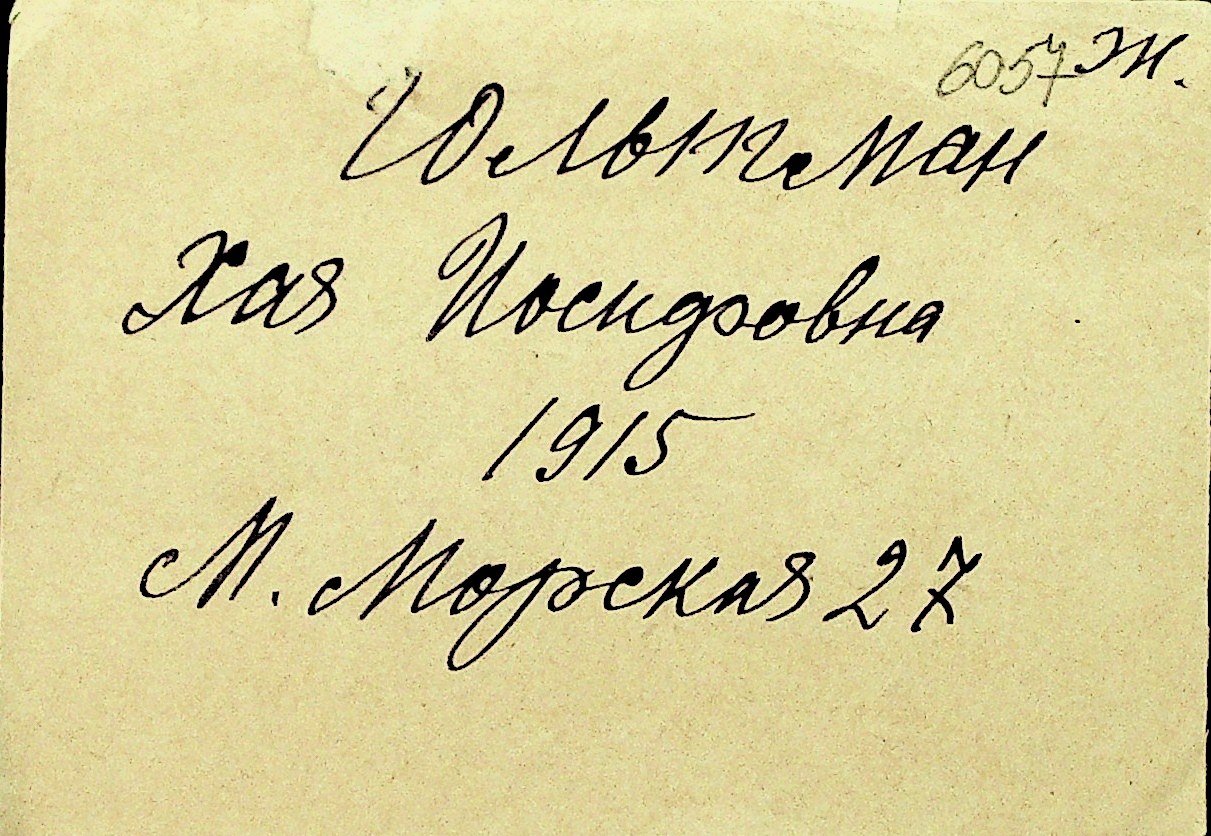 6057 Ж.
Гольтман
Хая Иосифовна
1915
М. Морская 27